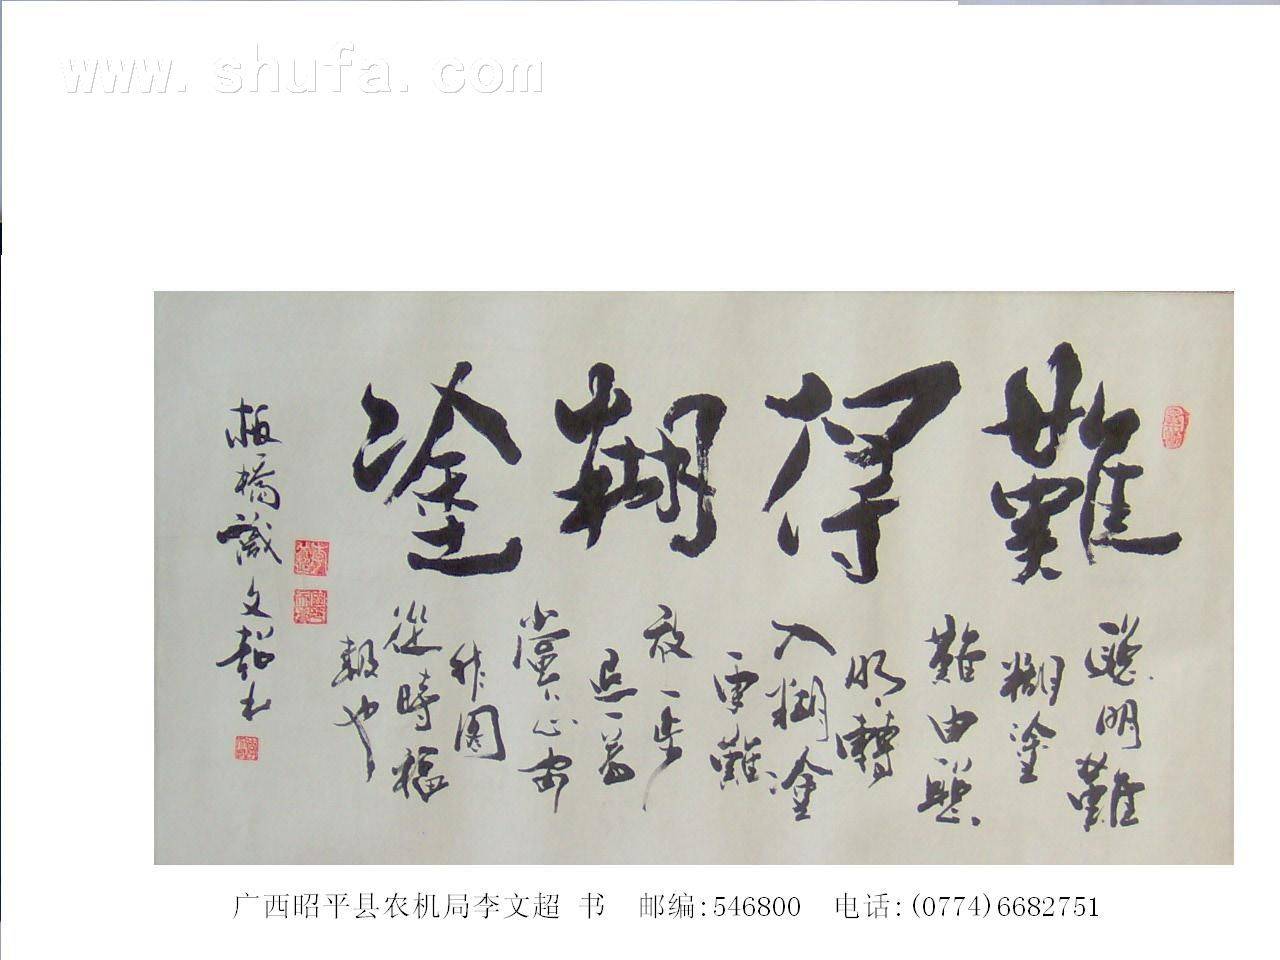 www.shufa.com
難得糊塗
聰明難
糊塗
難由聰
明轉
入糊塗
更難
放一步
退一着
當下心安
非圖
後時福
報也
板橋識文超书
广西昭平县农机局李文超 书 邮编:546800 电话:(0774)6682751